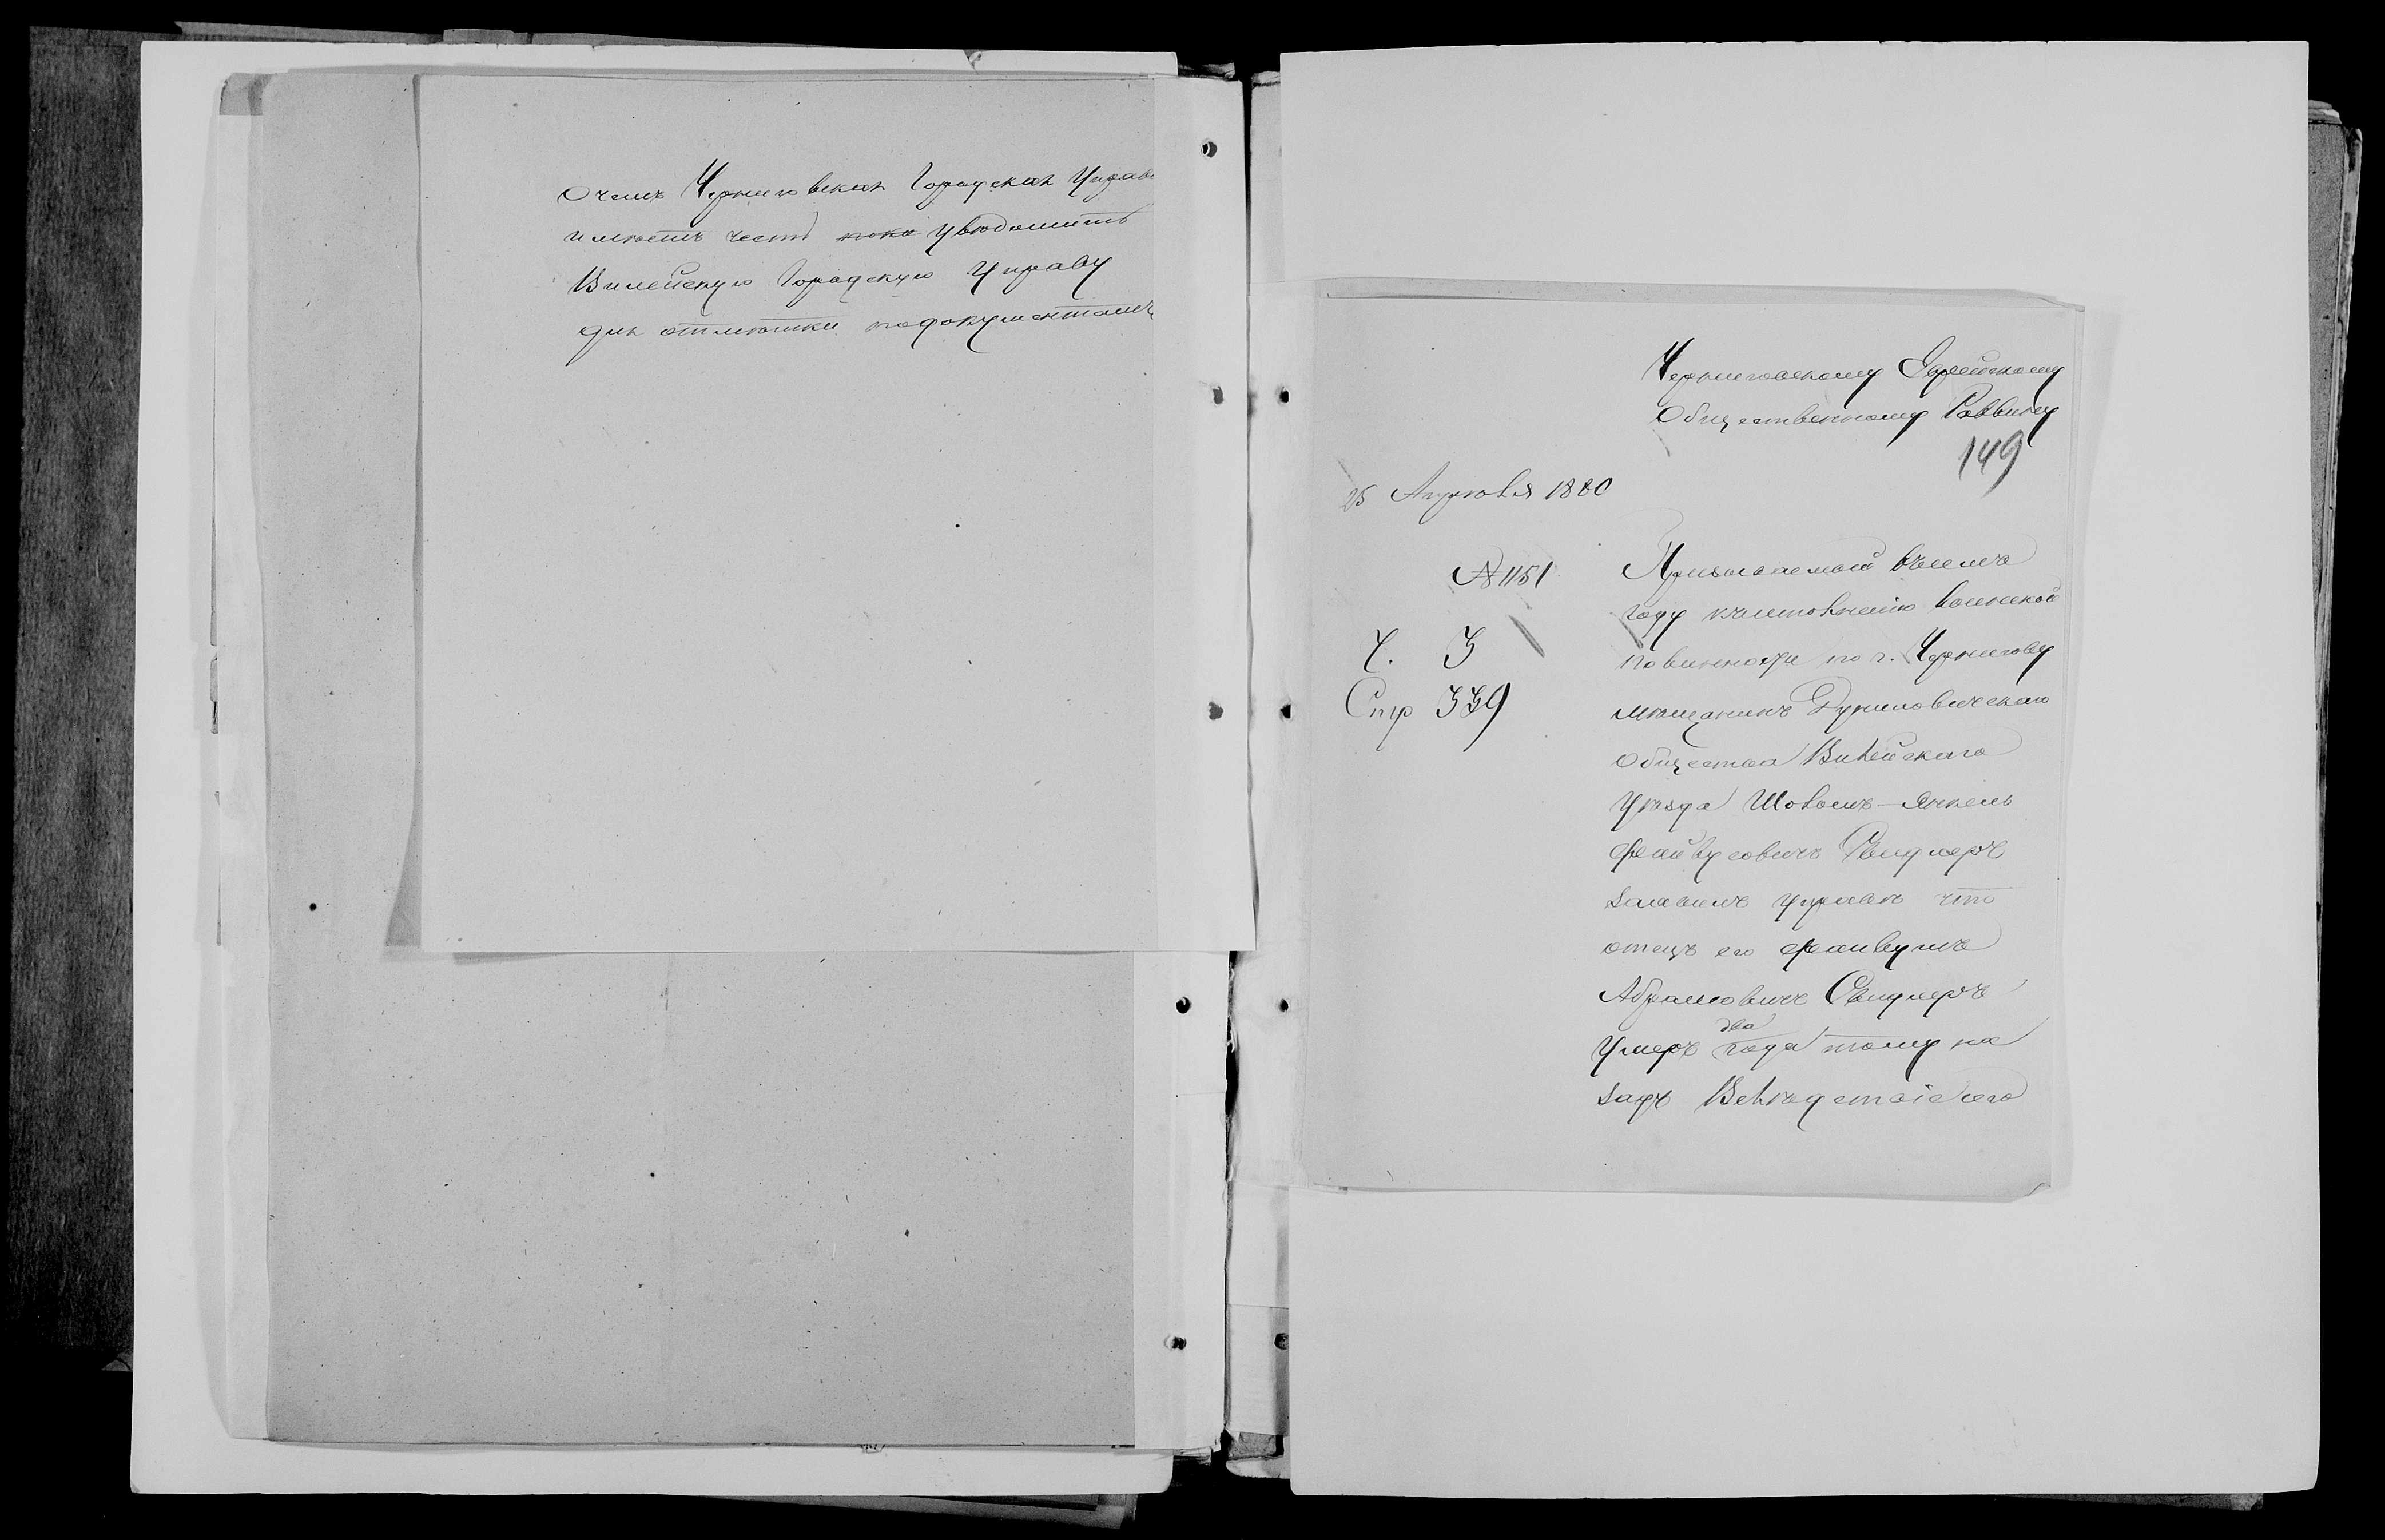 О чемъ Черниговская Городская Управа
имѣетъ честь увѣдомить
Вилейскую Городскую Управу
для отмѣтки по документамъ
Черниговскому Еврейскому
Общественному Раввину
149
25 Апрѣля 1880
№ 1151
Ч. 3
Стр 339
Призываемый въ семъ
году къ исполненію воинской
повинности по г. Чернигову
мѣщанинъ Дуниловичскаго
общества Вилейскаго
уѣзда Шоломъ-Янкель
Файвусовичъ Свидлеръ
заявилъ Управѣ что
отецъ его Файвушъ
Абрамовичъ Свидлеръ
умеръ два года тому на
задъ Вслѣдствіе сего